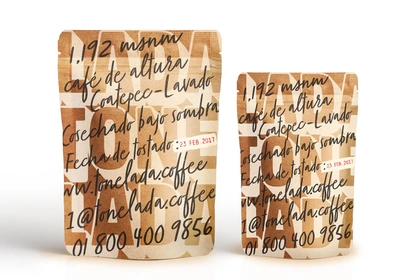 1,192 msnm
café de altura
Coatepec-Lavado
Cosechado bajo sombra
Fecha de tostado : 23 FEB. 2017
ww.tonelada.coffee
1@tonelada.coffee
01 800 400 9856
TONE
LADA
1,192 msnm
café de altura
Coatepec-Lavado
Cosechado bajo sombra
Fecha de tostado : 23 FEB. 2017
ww.tonelada.coffee
1@tonelada.coffee
01 800 400 9856
TONE
LADA